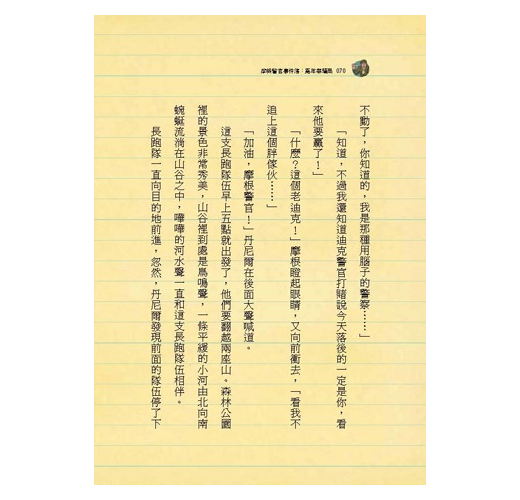 摩根警官事件簿：嘉年華騙局 070
不動了，你知道的，我是那種用腦子的警察……」
「知道，不過我還知道迪克警官打賭說今天落後的一定是你，看
來他要贏了！」
「什麼？這個老迪克！」摩根瞪起眼睛，又向前衝去，「看我不
追上這個胖傢伙……」
「加油，摩根警官！」丹尼爾在後面大聲喊道。
這支長跑隊伍早上五點就出發了，他們要翻越兩座山。森林公園
裡的景色非常秀美，山谷裡到處是鳥鳴聲，一條平緩的小河由北向南
蜿蜒流淌在山谷之中，嘩嘩的河水聲一直和這支長跑隊伍相伴。
長跑隊一直向目的地前進，忽然，丹尼爾發現前面的隊伍停了下